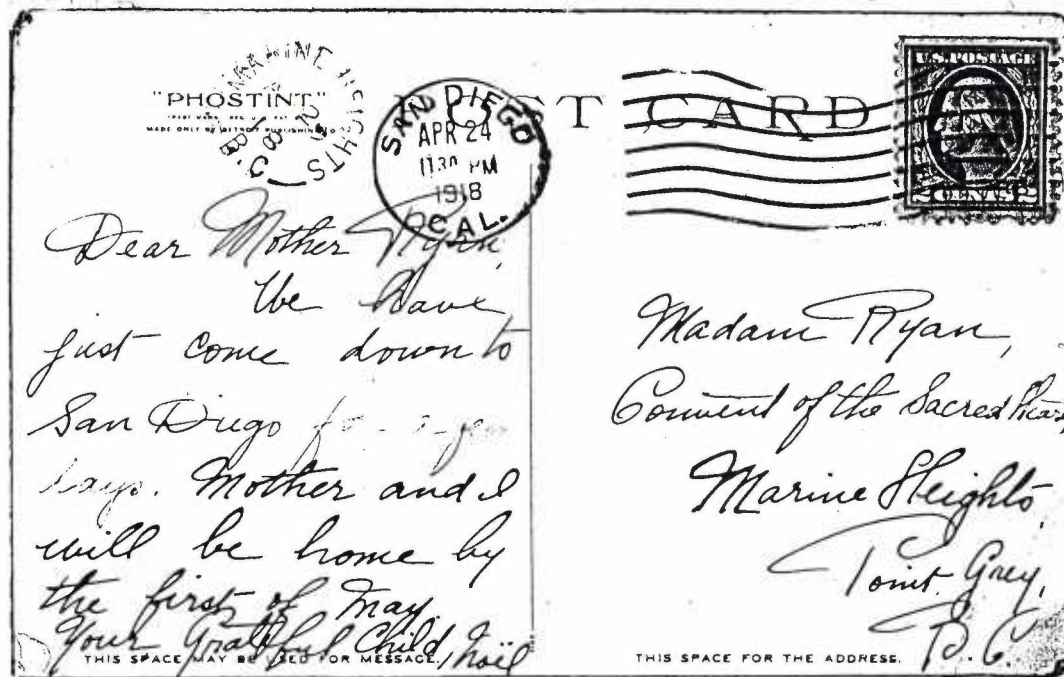 "PHOSTINT"
MADE ONLY BY DETROIT PUBLISHING CO.
POST CARD
MARINE HEIGHTS
B.C.
SAN DIEGO
APR 24
11 30 PM
1918
CAL.
U.S. POSTAGE
2 CENTS 2
Dear Mother Ryan,
We have
just come down to
San Diego for a few
days. Mother and I
will be home by
the first of May.
Your Grateful Child, Noël
THIS SPACE MAY BE USED FOR MESSAGE.
Madam Ryan,
Convent of the Sacred Heart,
Marine Heights,
Point Grey,
B.C.
THIS SPACE FOR THE ADDRESS.